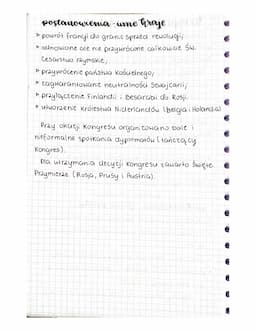 postanowienia - inne kraje
• powrót francji do granic sprzed rewolucji;
• odnowione ale nie przywrócone całkowicie Św.
Cesarstwo rzymskie;
• przywrócenie państwa kościelnego;
• zagwarantowanie neutralności Szwajcarii;
• przyłączenie Finlandii i Besarabii do Rosji.
• utworzenie królestwa Niderlandów (Belgia i Holandia)
Przy okazji Kongresu organizowano bale i
nieformalne spotkania dyplomatów (tańczący
Kongres).
Dla utrzymania decyzji Kongresu zawarto Święte
Przymierze (Rosja, Prusy i Austria).